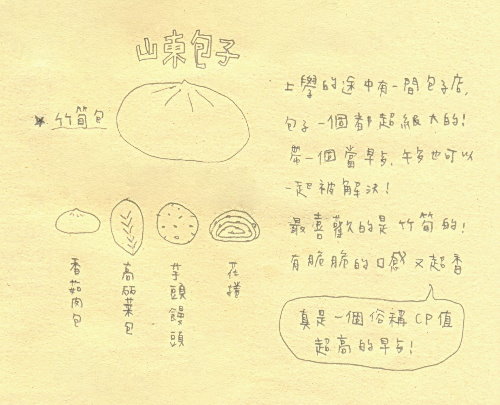 山東包子
★竹筍包
上學的途中有一間包子店,
包子一個都超級大的!
帶一個當早点,午多也可以
一起被解決!
最喜歡的是竹筍的!
有脆脆的口感又超香
真是一個俗稱CP值
超高的早点!
香菇肉包
高麗菜包
芋頭饅頭
花捲